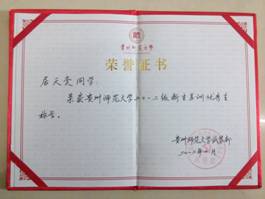 贵州师范大学
荣誉证书
同学:
荣获贵州师范大学二〇一二级新生军训优秀生
称号。
贵州师范大学武装部
二〇一二年 月